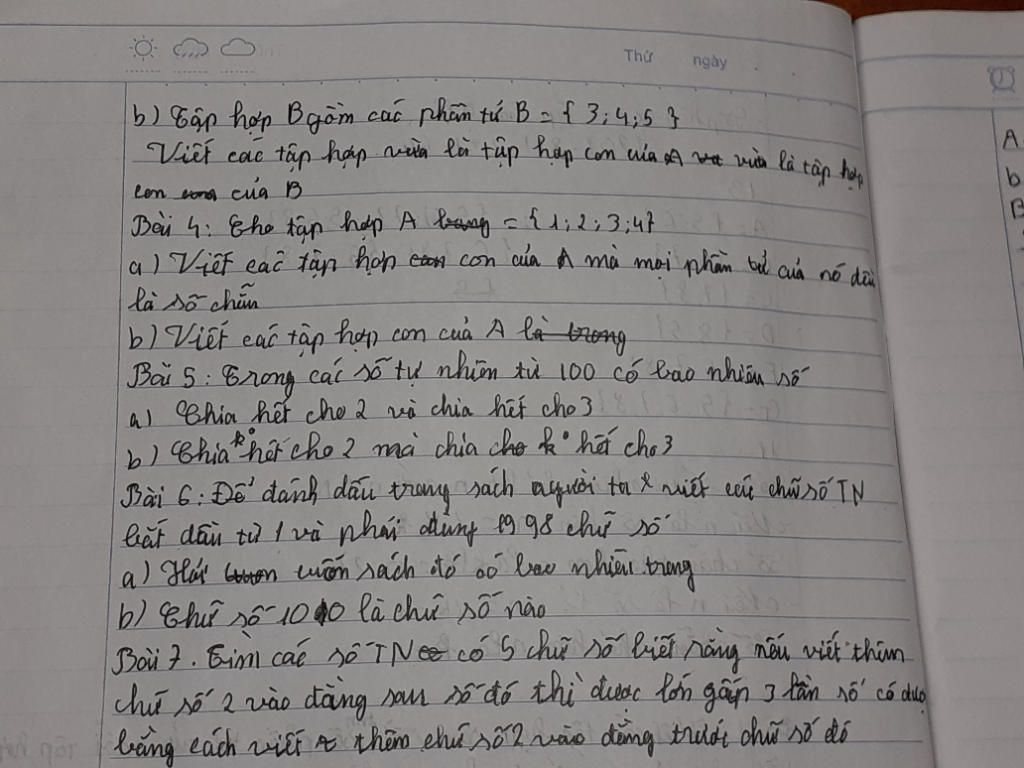 Thứ ngày
b) Tập hợp B gồm các phần tử B = { 3; 4; 5 }
Viết các tập hợp vừa là tập hợp con của A vừa là tập hợp
con của B
Bài 4: Cho tập hợp A = {1; 2; 3; 4}
a) Viết các tập hợp con của A mà mọi phần tử của nó đều
là số chẵn
b) Viết các tập hợp con của A là trong
Bài 5: Trong các số tự nhiên từ 100 có bao nhiêu số
a) Chia hết cho 2 và chia hết cho 3
b) Chia hết cho 2 mà chia cho k° hết cho 3
Bài 6: Để đánh dấu trang sách người ta viết các chữ số TN
bắt đầu từ 1 và phải dùng 1998 chữ số
a) Hỏi cuốn sách đó có bao nhiêu trang
b) Chữ số 1010 là chữ số nào
Bài 7. Tìm các số TN có 5 chữ số biết rằng nếu viết thêm
chữ số 2 vào đằng sau số đó thì được lớn gấp 3 lần số có được
bằng cách viết thêm chữ số 2 vào đằng trước chữ số đó
A
b
B